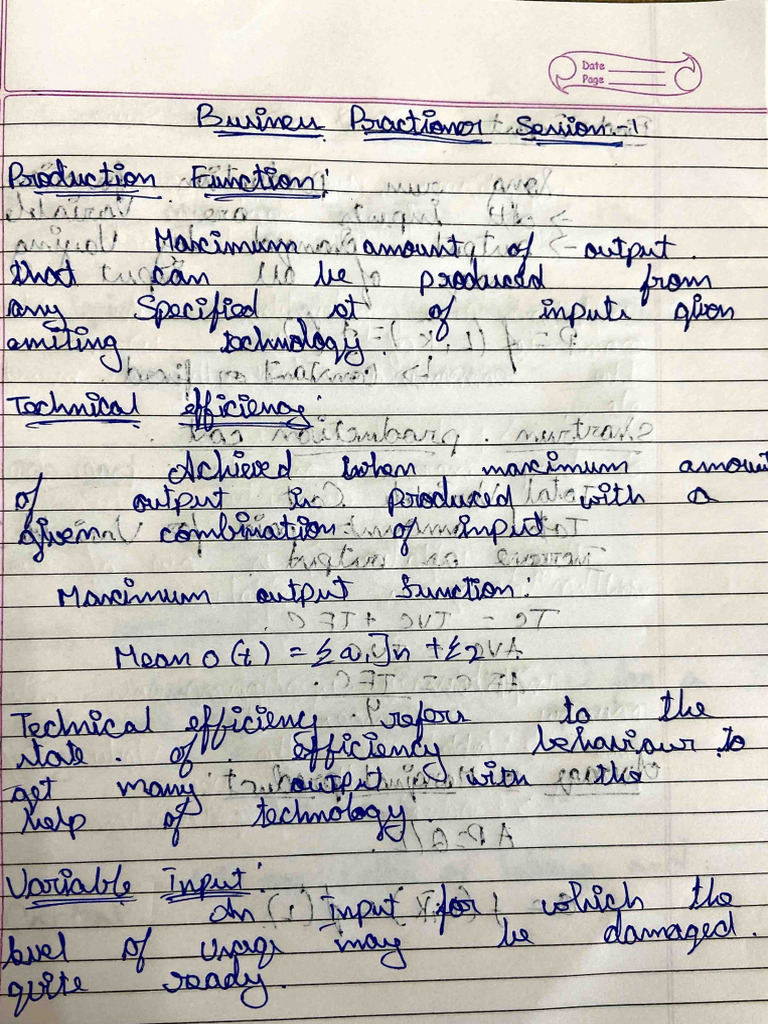 Date
Page
Business Practioner Session-1
Production Function:
Maximum amount of output
that can be produced from
any Specified st of inputs given
emiting technology.
Technical efficiency:
Achieved when maximum amount
of output is produced with a
given combination of input
Maximum output function:
Mean o (t) =
Technical efficiency refers to the
state of efficiency behaviour to
get many output with the
help of technology.
Variable Input:
An Input for which the
level of usage may be damaged.
quite ready.